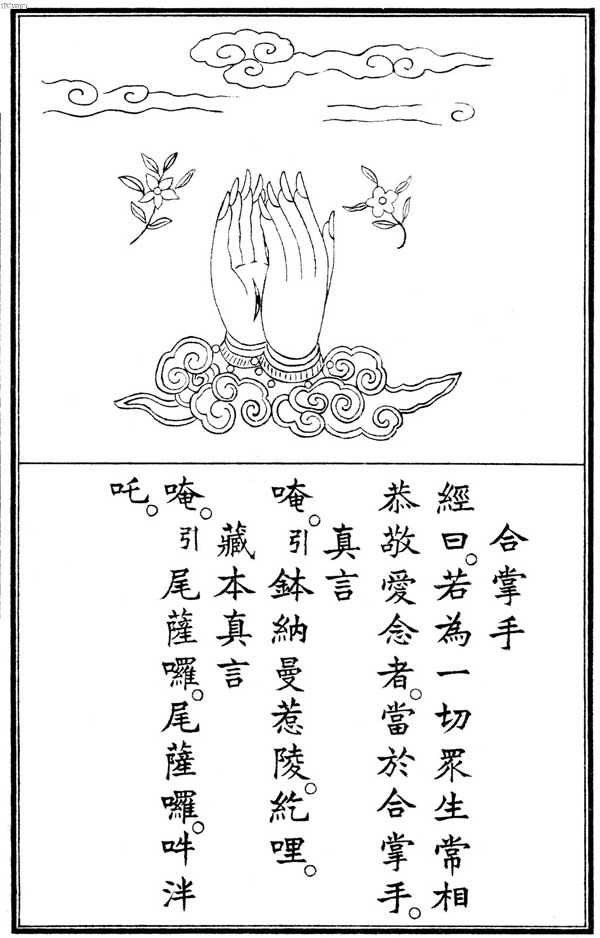 合掌手
經曰。若為一切眾生常相
恭敬愛念者。當於合掌手。
真言
唵。引鉢納曼惹陵。紇哩。
藏本真言
唵。引尾薩囉。尾薩囉。吽泮
吒。